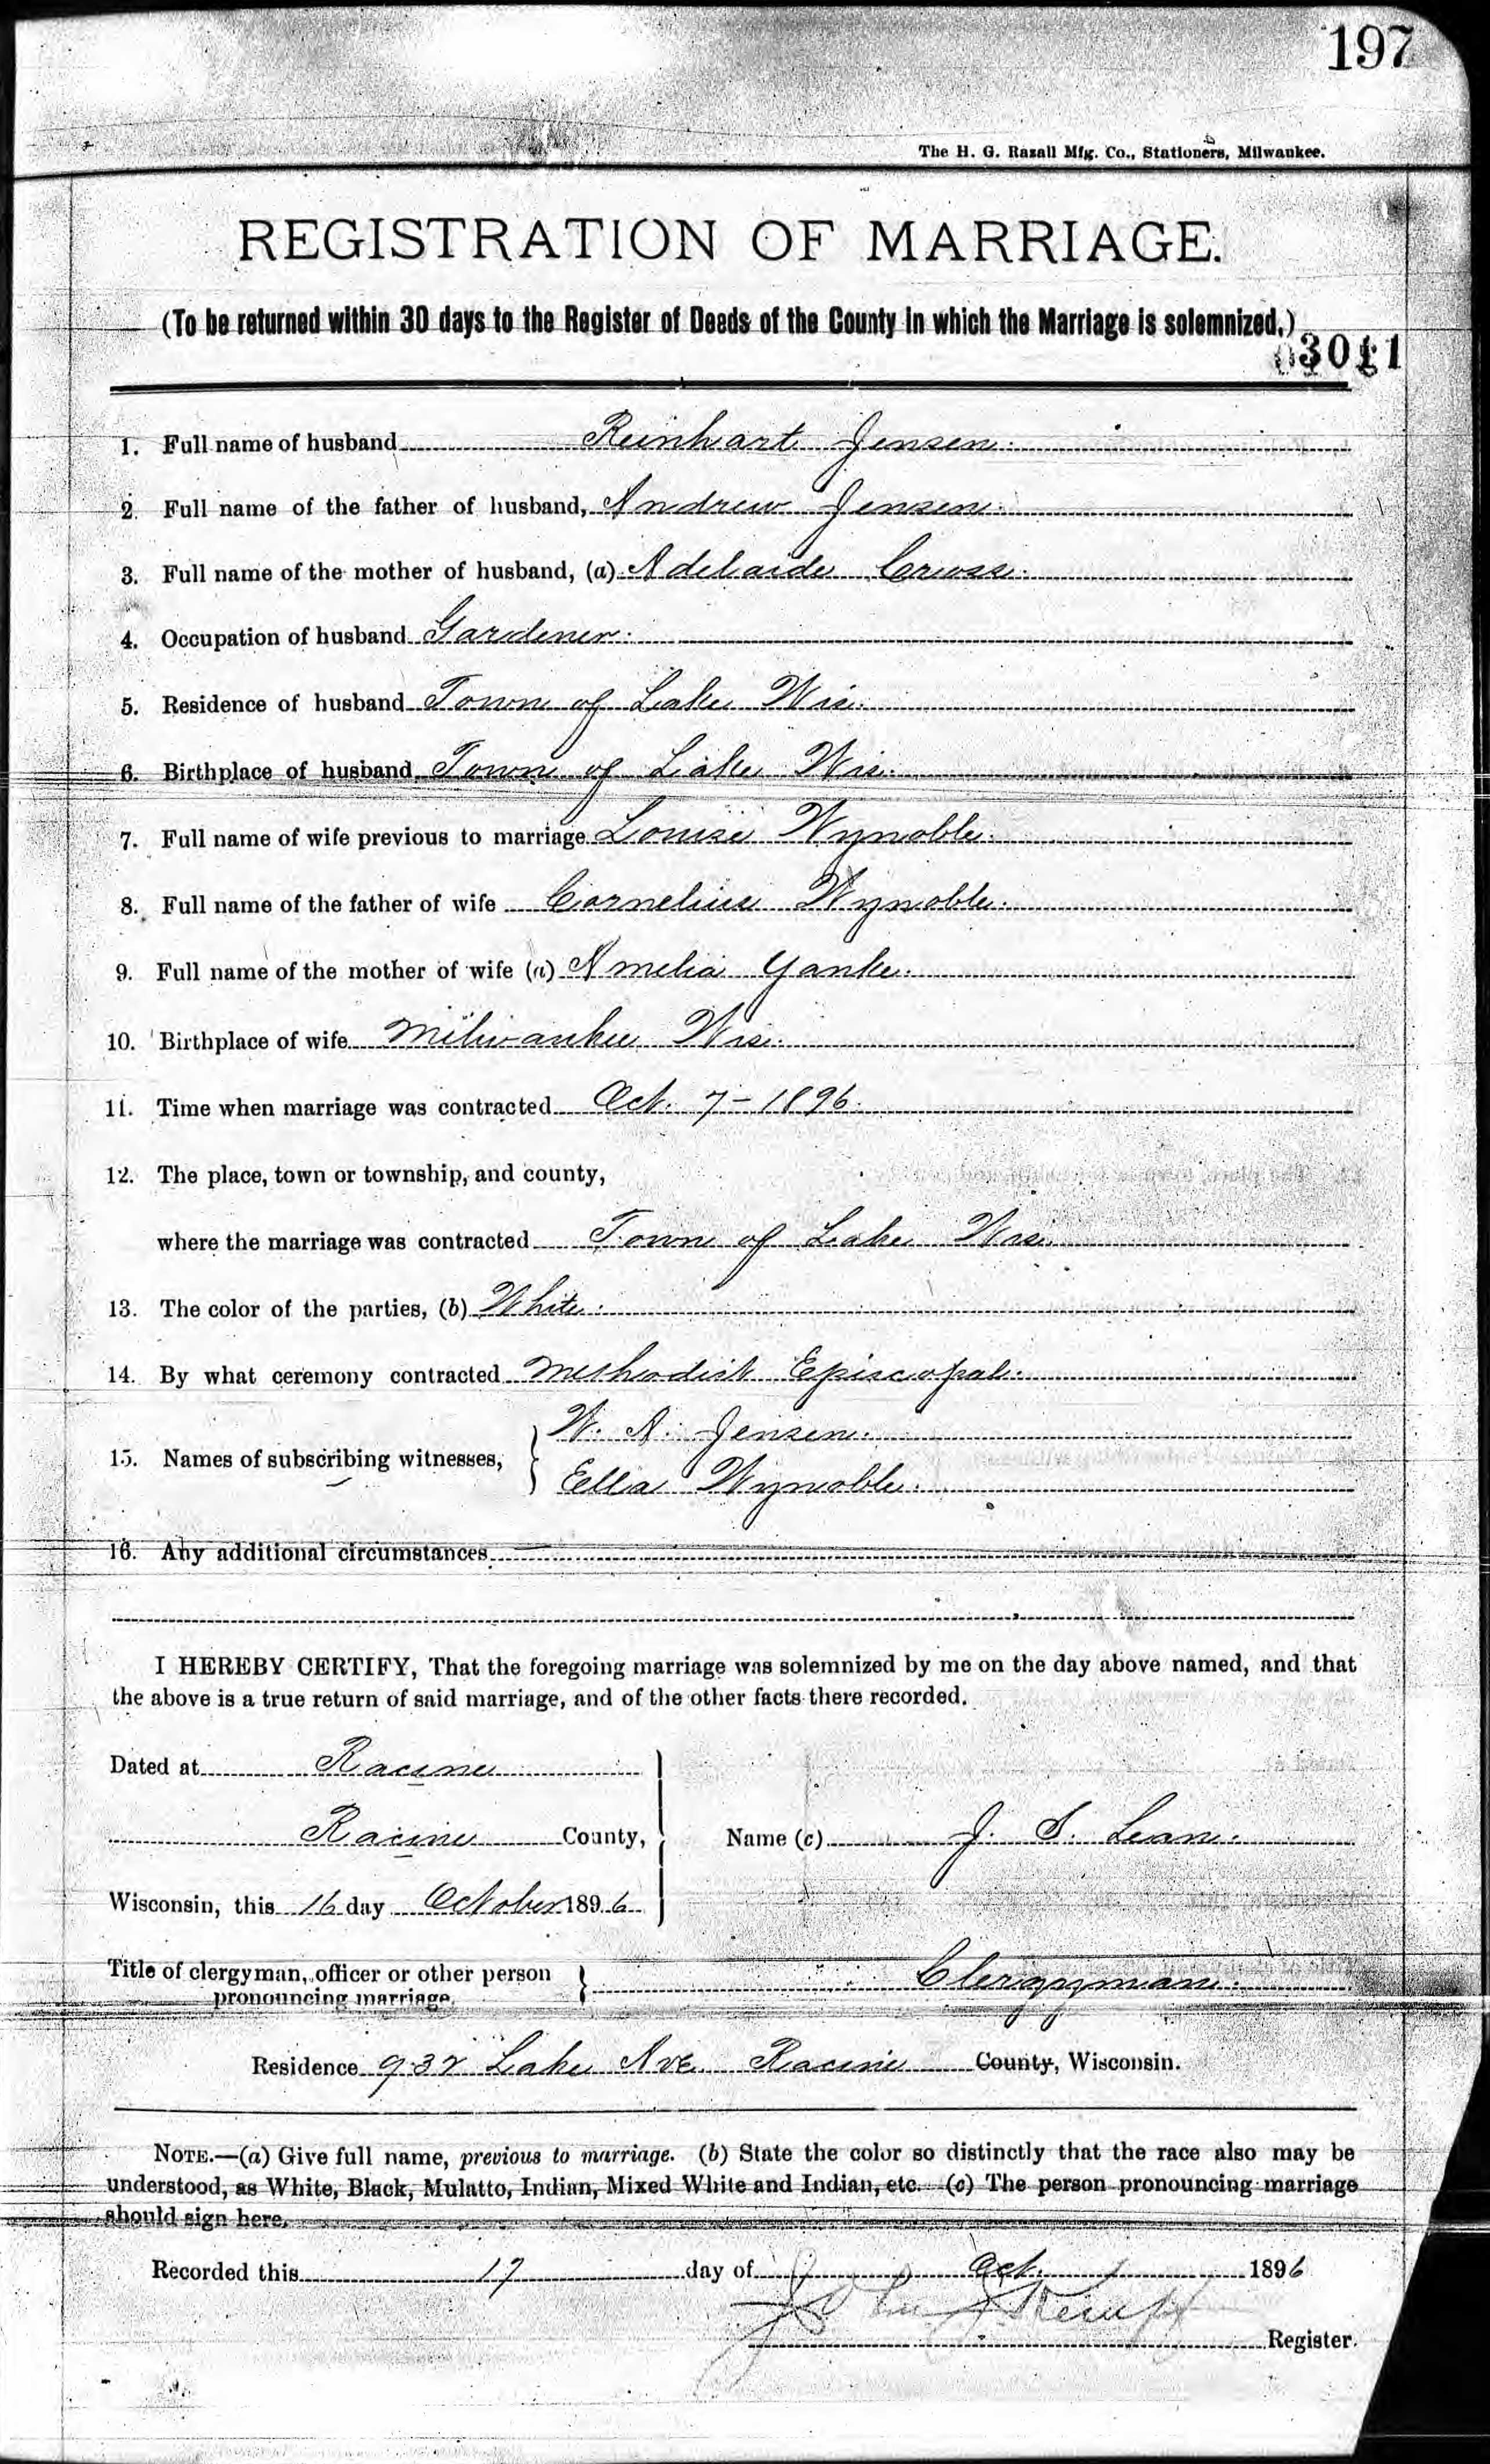 197
The H. G. Razall Mfg. Co., Stationers, Milwaukee.
REGISTRATION OF MARRIAGE.
(To be returned within 30 days to the Register of Deeds of the County in which the Marriage is solemnized.)
1. Full name of husband Reinhart Jensen.
2. Full name of the father of husband, Andrew Jensen.
3. Full name of the mother of husband, (a) Adelaide
4. Occupation of husband Gardener.
5. Residence of husband Town of Lake Wis.
6. Birthplace of husband Town of Lake Wis.
7. Full name of wife previous to marriage Louise Wynoble.
8. Full name of the father of wife Cornelius Wynoble.
9. Full name of the mother of wife (a) Amelia Yanke.
10. Birthplace of wife Milwaukee Wis.
11. Time when marriage was contracted Oct. 7- 1896.
12. The place, town or township, and county,
where the marriage was contracted Town of Lake Wis.
13. The color of the parties, (b) White.
14. By what ceremony contracted Methodist Episcopal.
W. A. Jensen.
15. Names of subscribing witnesses,
Ella Wynoble.
16. Any additional circumstances
I HEREBY CERTIFY, That the foregoing marriage was solemnized by me on the day above named, and that
the above is a true return of said marriage, and of the other facts there recorded.
Dated at Racine
Racine County, Name (c) J. S. Lean.
Wisconsin, this 16 day October 1896
Title of clergyman, officer or other person
pronouncing marriage, Clergyman.
Residence 932 Lake Ave. Racine County, Wisconsin.
NOTE.—(a) Give full name, previous to marriage. (b) State the color so distinctly that the race also may be
understood, as White, Black, Mulatto, Indian, Mixed White and Indian, etc. (c) The person pronouncing marriage
should sign here.
Recorded this 17 day of Oct. 1896
John Register.